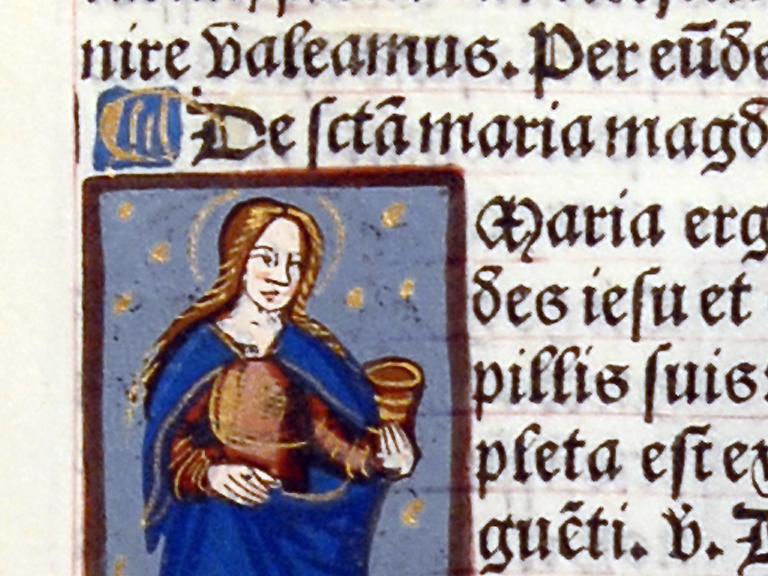 nire valeamus. Per eūde
De sctā maria magd
Maria erg
des iesu et
pillis suis:
pleta est ex
guēti. v.